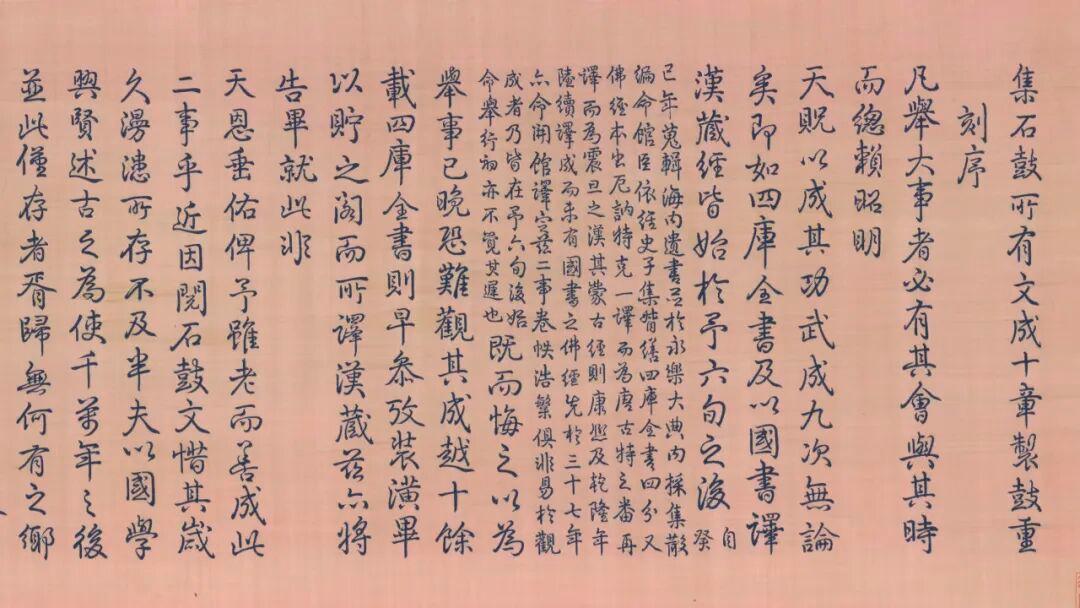 集石鼓所有文成十章製鼓重
刻序
凡舉大事者必有其會與其時
而總賴昭明
天貺以成其功武成九次無論
矣即如四庫全書及以國書譯
漢藏經皆始於予六旬之後自
癸
巳年蒐輯海内遺書並於永樂大典内採集散
編命館臣依經史子集皆繕四庫全書四分又
佛經本出厄訥特克一譯而為唐古特之番再
譯而為震旦之漢其蒙古經則康熙及乾隆年
陸續譯成而未有國書之佛經先於三十七年
亦命開館譯定茲二事卷帙浩繁俱非易於觀
成者乃皆在予六旬後始
命舉行初亦不覺其遲也
既而悔之以為
舉事已晚恐難觀其成越十餘
載四庫全書則早叅攷裝潢畢
以貯之閣而所譯漢藏茲亦將
告畢就此非
天恩垂佑俾予雖老而善成此
二事乎近因閱石鼓文惜其歲
久漫漶所存不及半夫以國學
興賢述古之為使千萬年之後
並此僅存者胥歸無何有之鄉